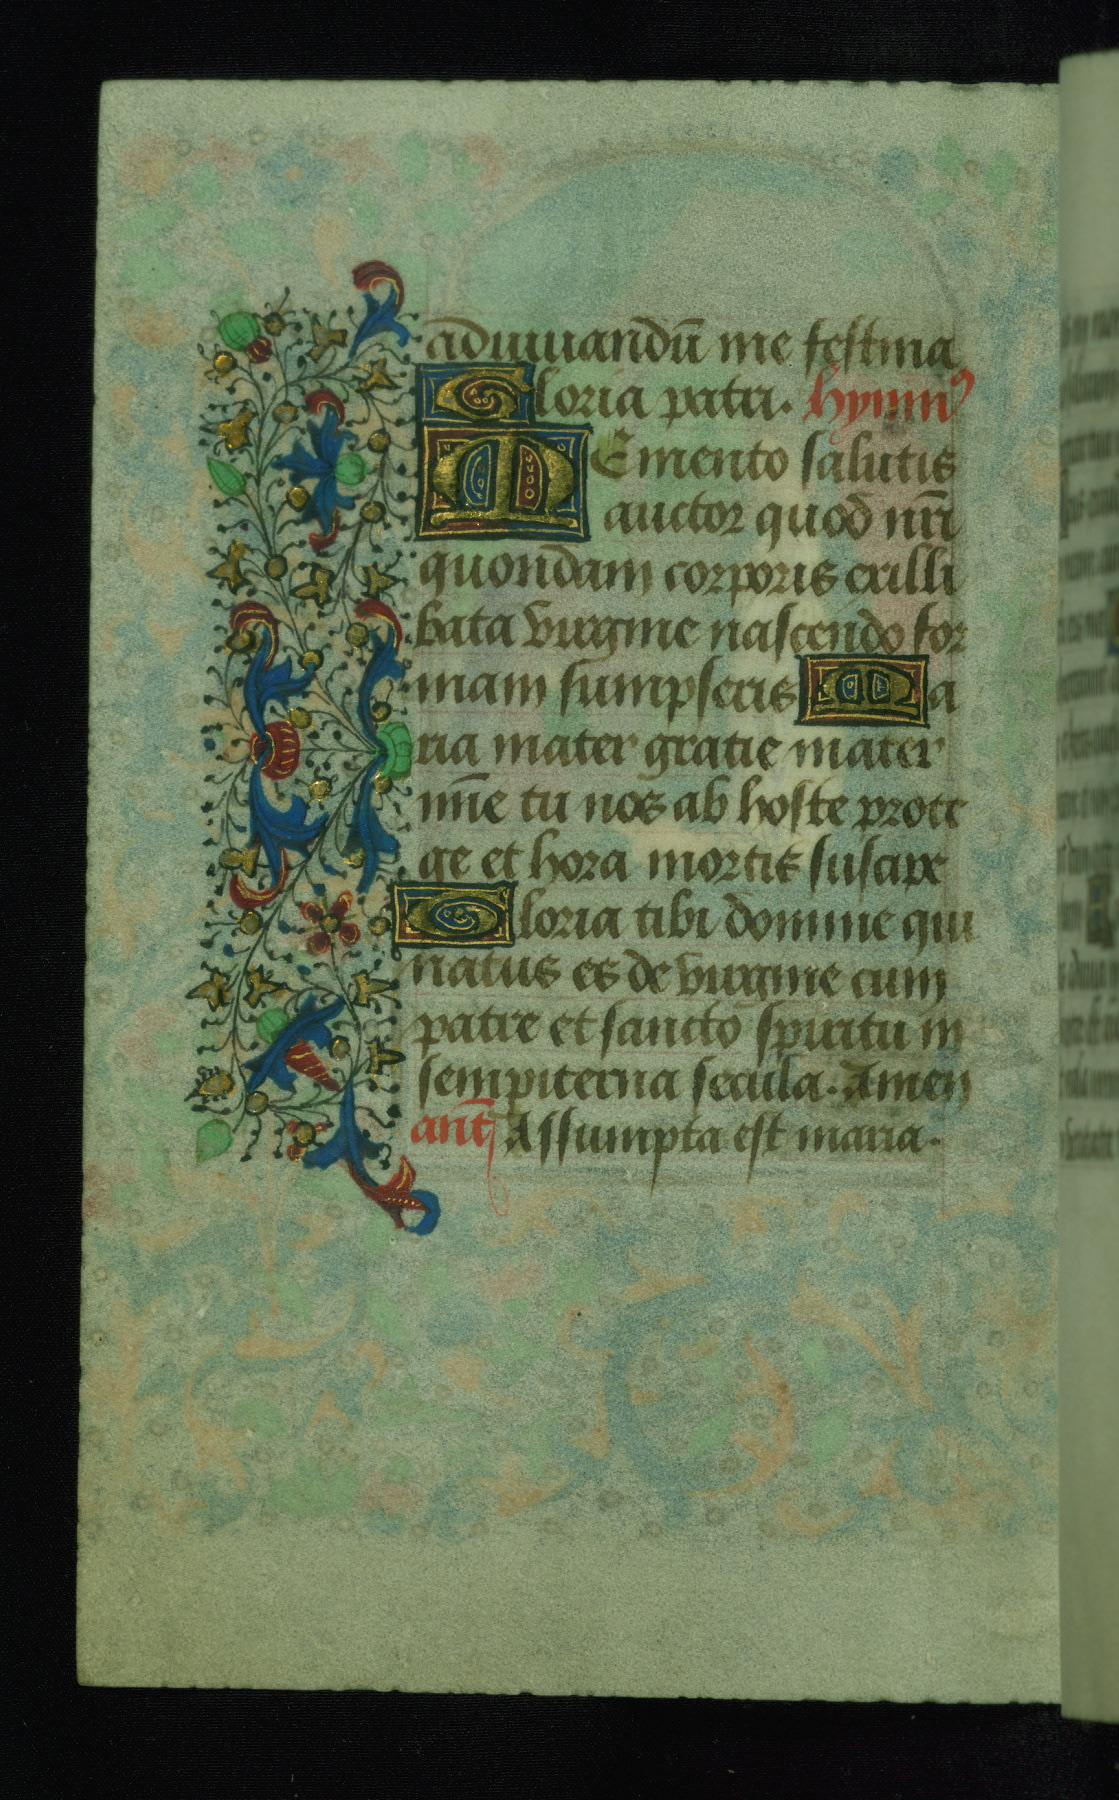 adiuuandū me festina
Gloria patri. Hymn⁹
MEmento salutis
auctor quod nr̄i
quondam corporis ex illi
bata virgine nascendo for
mam sumpseris Ma
ria mater gratie mater
mīe tu nos ab hoste prote
ge et hora mortis suscipe
Gloria tibi domine qui
natus es de virgine cum
patre et sancto spiritu in
sempiterna secula. Amen
ant̄ Assumpta est maria.